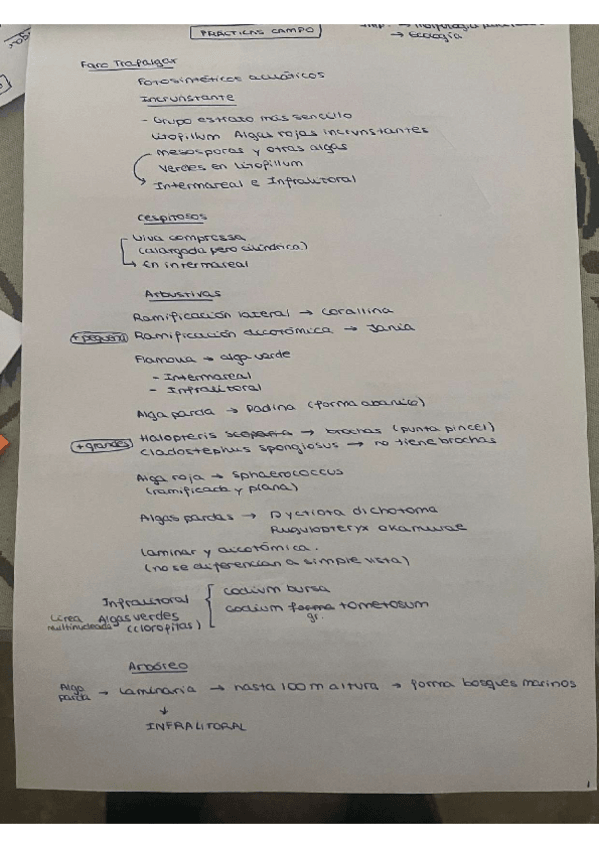 PRÁCTICAS CAMPO
→ Ecología
Faro Trafalgar
Fotosintéticos acuáticos
Incrunstante
- Grupo estrato más sencillo
Litofillum Algas rojas incrunstantes
mesosporas y otras algas
verdes en Litofillum
Intermareal e Infralitoral
Cespitosos
Ulva compressa
(alargada pero cilíndrica)
→ En intermareal
Arbustivas
Ramificación lateral → corallina
+ pequeña Ramificación dicotómica → Jania
Flamoua → alga verde
- Intermareal
- Infralitoral
Alga parda → Padina (forma abanico)
Halopteris scoparia → brochas (punta pincel)
+ grandes Cladostephus spongiosus → no tiene brochas
Alga roja → sphaerococcus
(ramificada y plana)
Algas pardas → Dyctiota dichotoma
Rugulopteryx okamurae
Laminar y dicotómica.
(no se diferencian a simple vista)
Infralitoral codium bursa
Línea Algas verdes codium forma tometosum
multinucleada (clorofitas) gr.
Arbóreo
Alga
parda → Laminaria → hasta 100 m altura → forma bosques marinos
↓
INFRALITORAL